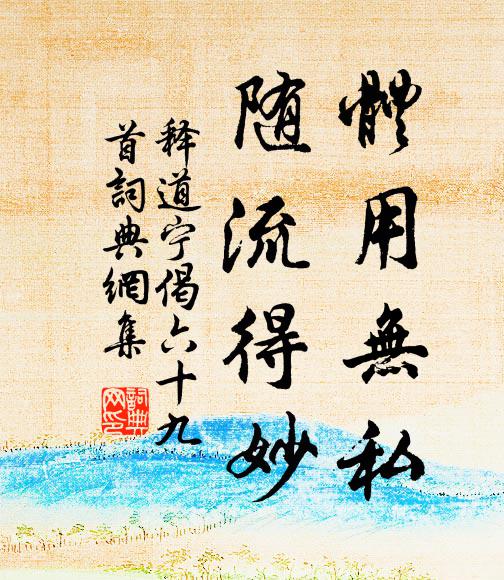 體用無私
随流得妙
释道宁偈六十九
首詞典網集
詞典
网印